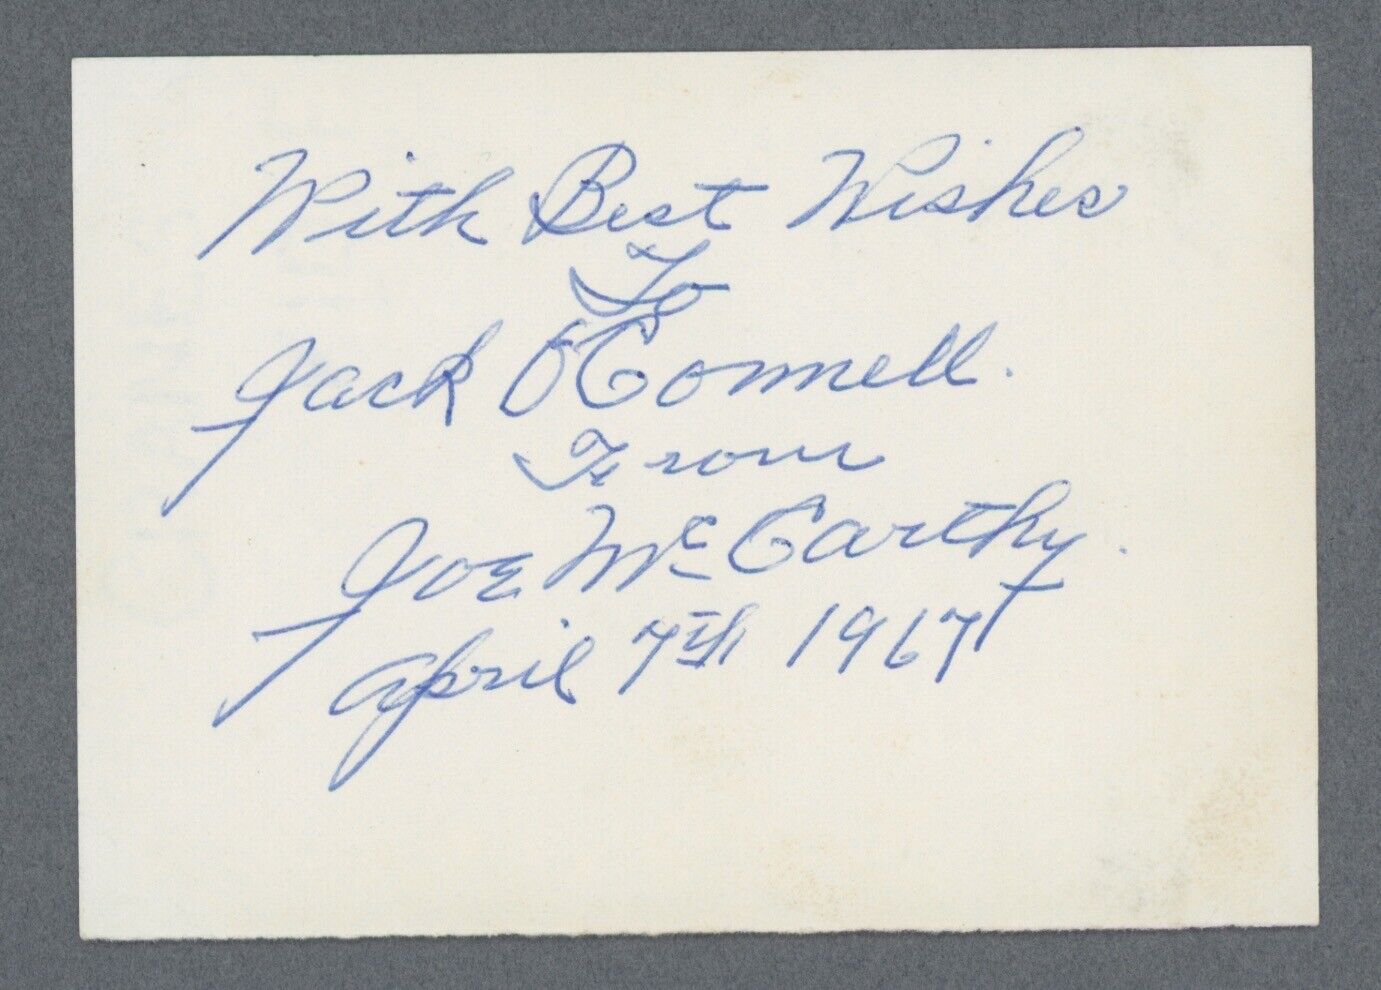 With Best Wishes
To
Jack O'Connell.
From
Joe McCarthy.
April 7th 1967